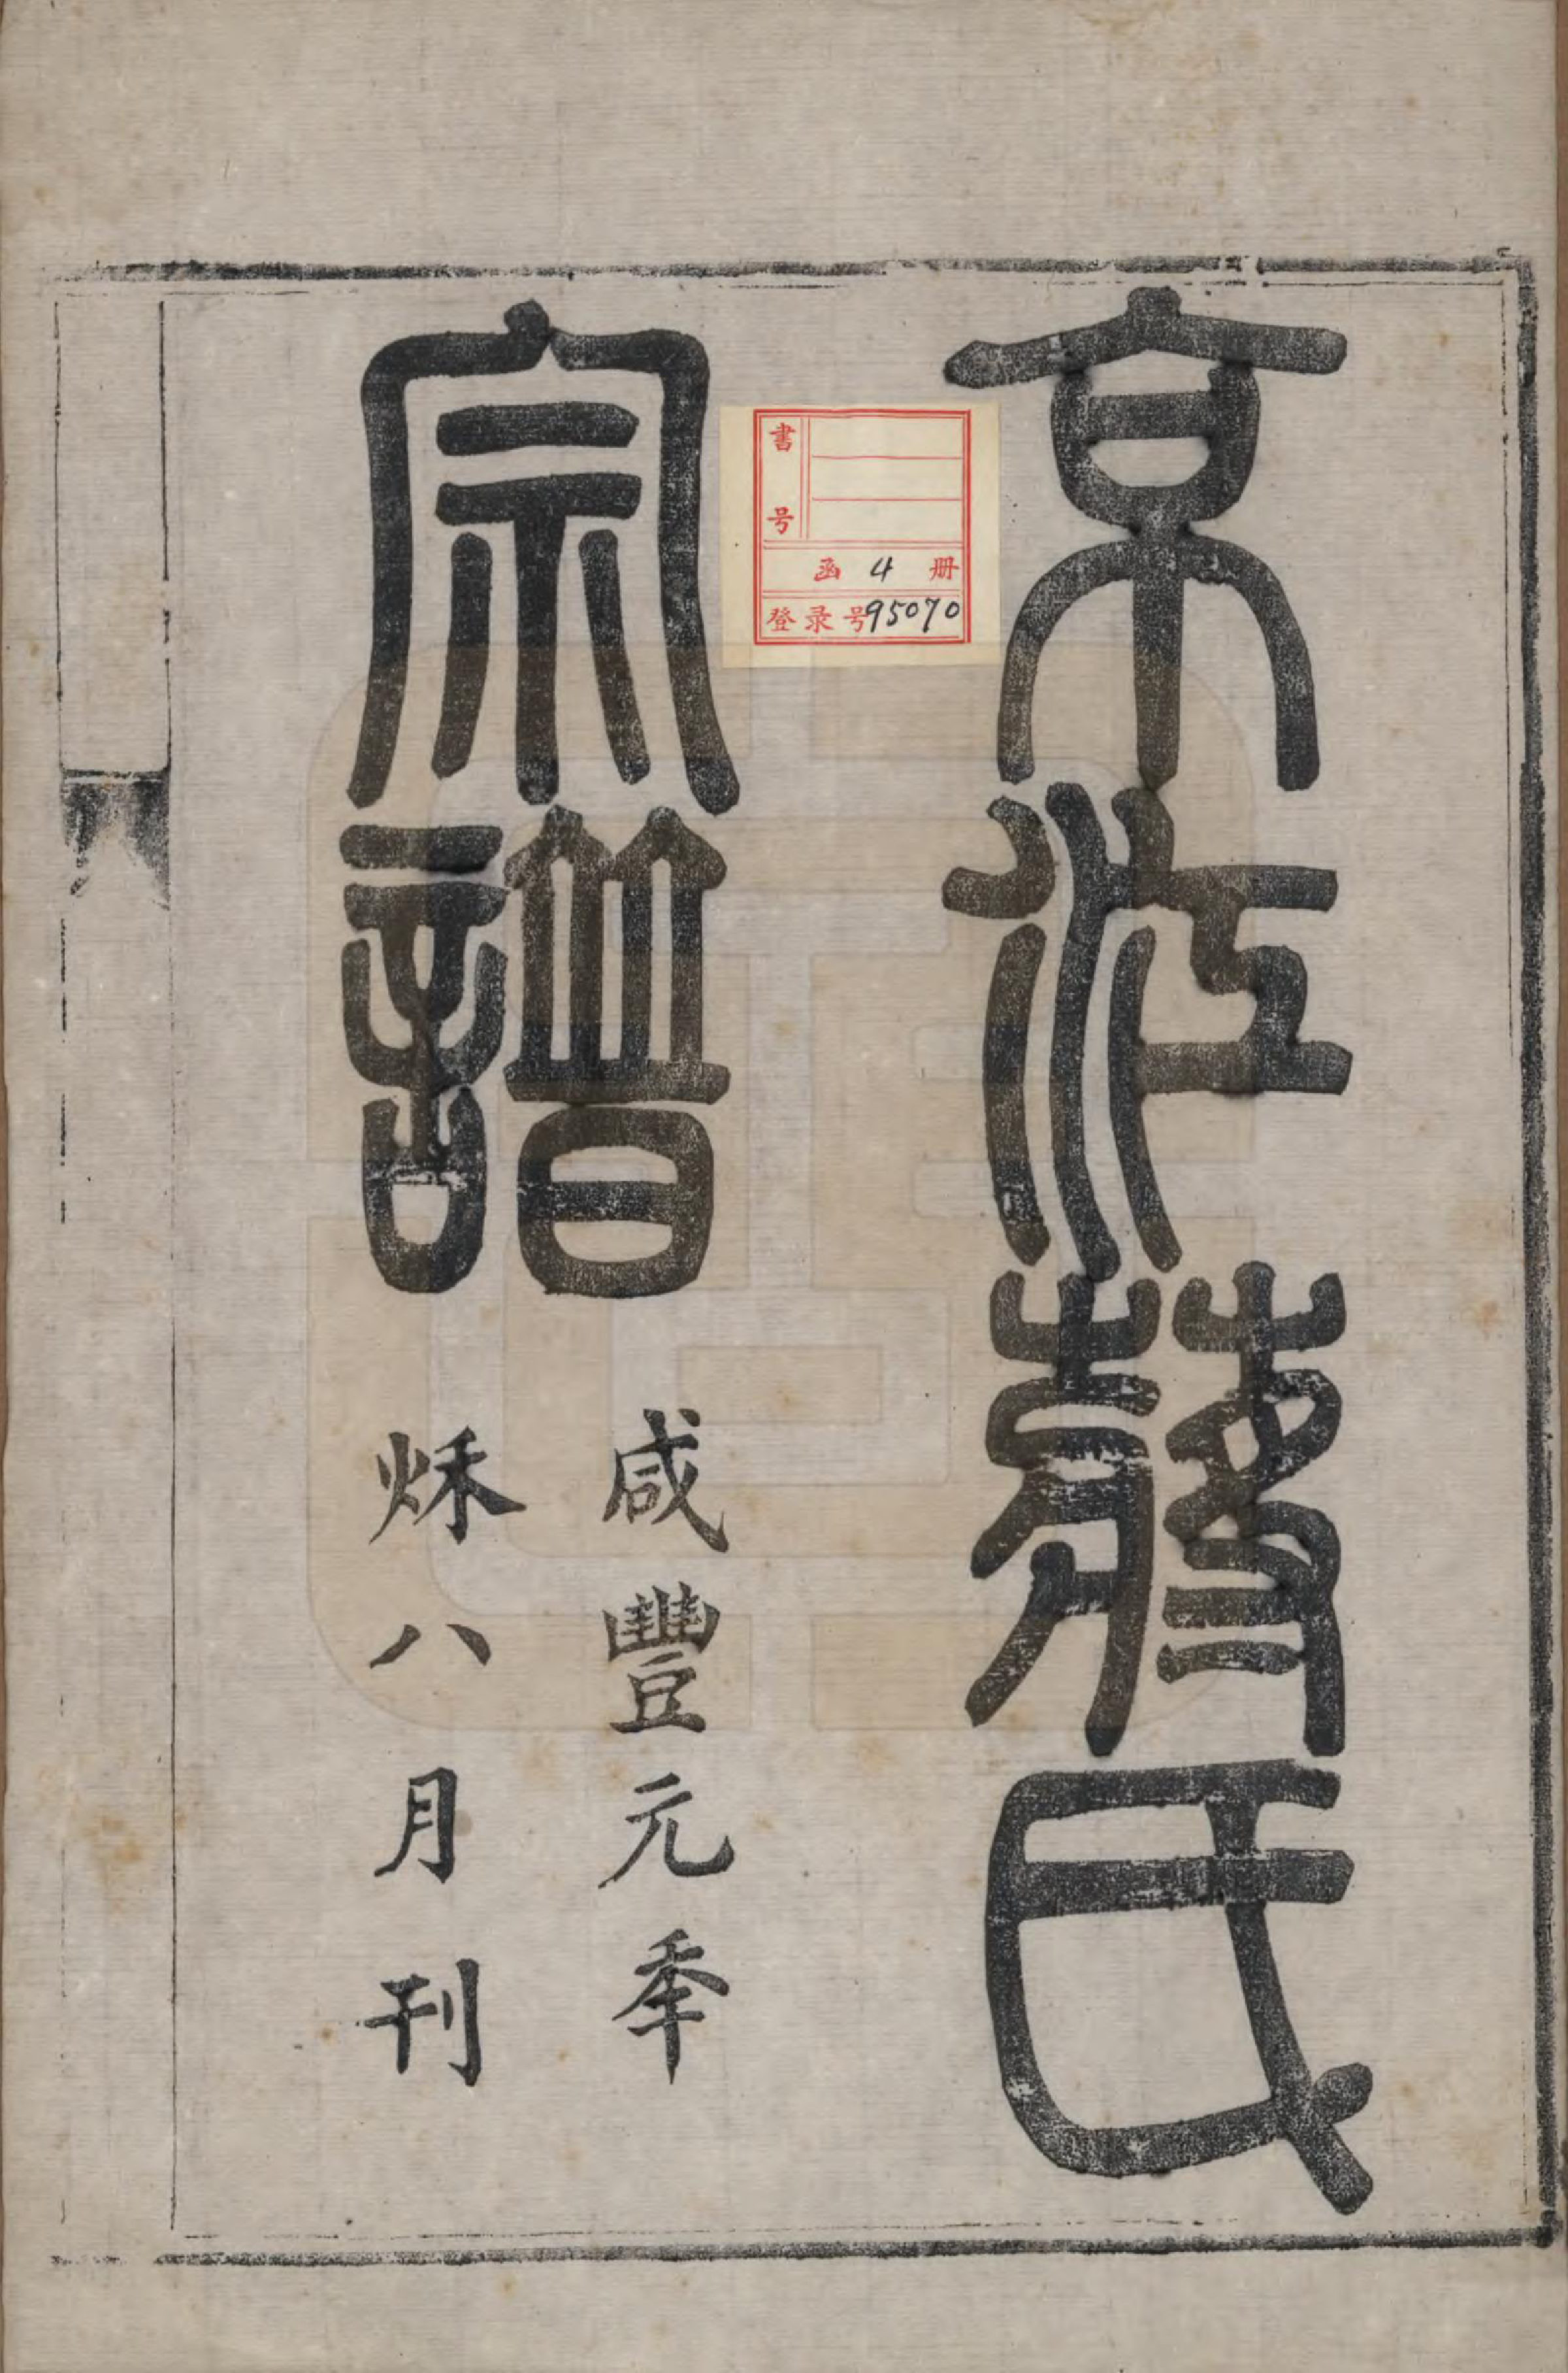 京江氏
宗譜
咸豐元秊
秌八月刊
書号
函 4 册
登录号95070